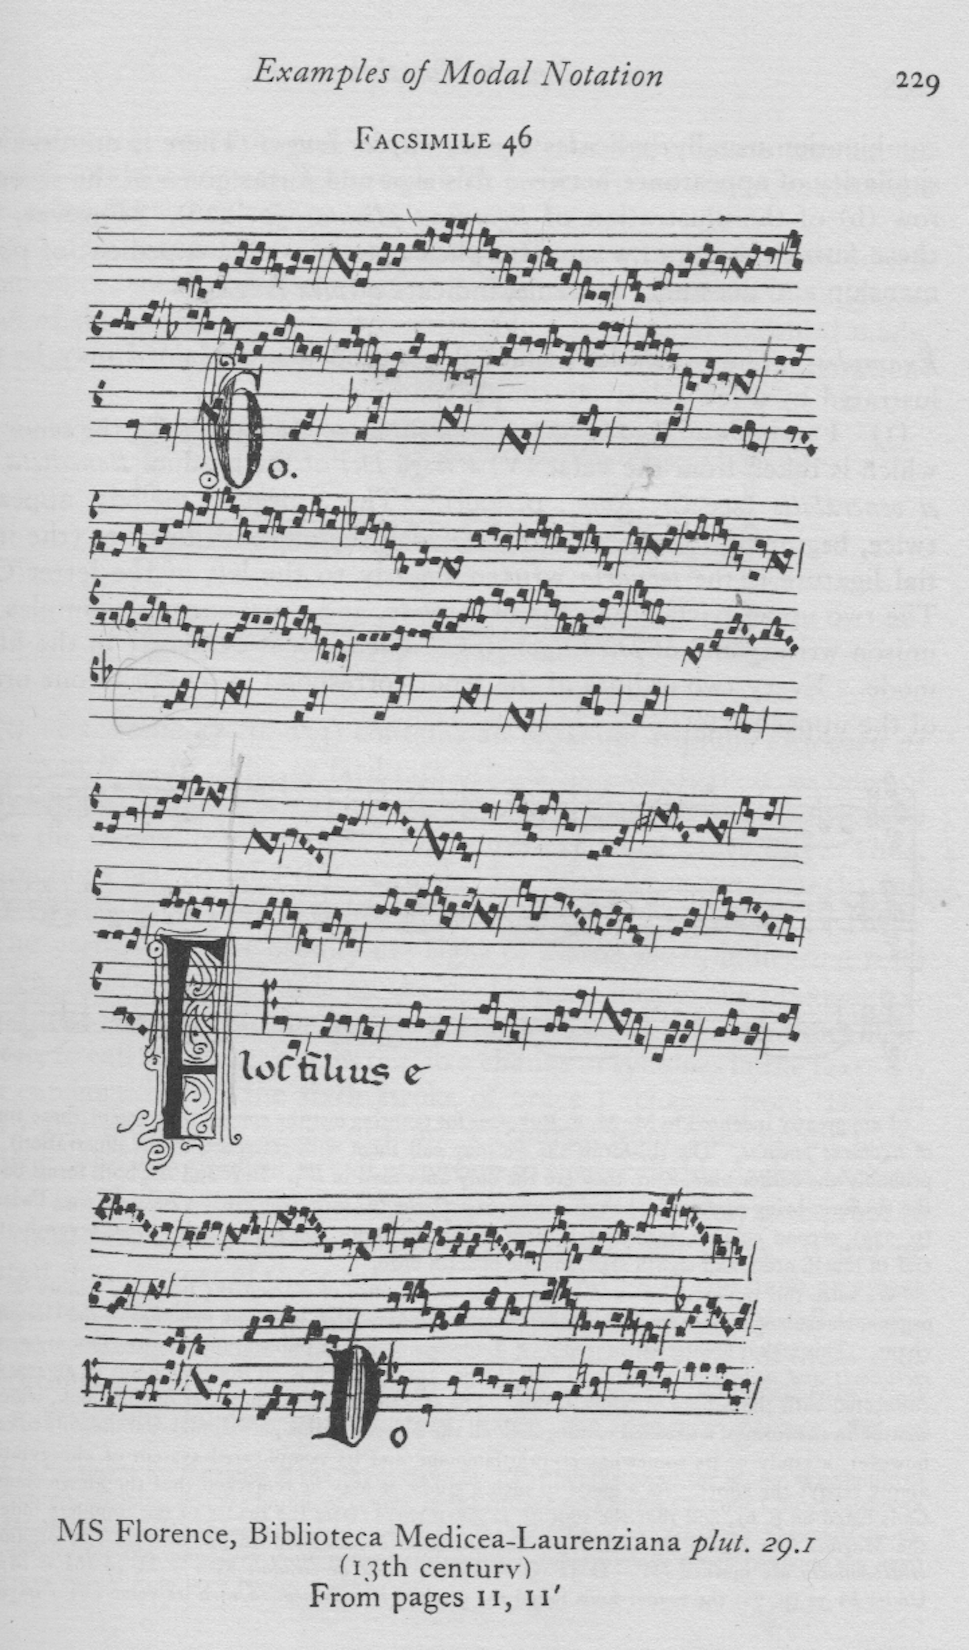 Examples of Modal Notation 229
FACSIMILE 46
o.
losfilius e
o
MS Florence, Biblioteca Medicea-Laurenziana plut. 29.1
(13th century)
From pages 11, 11′